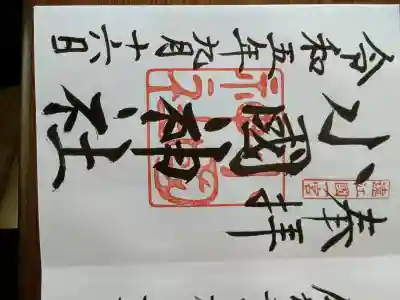 奉拝
遠江國一宮
小國神社
令和五年九月十六日